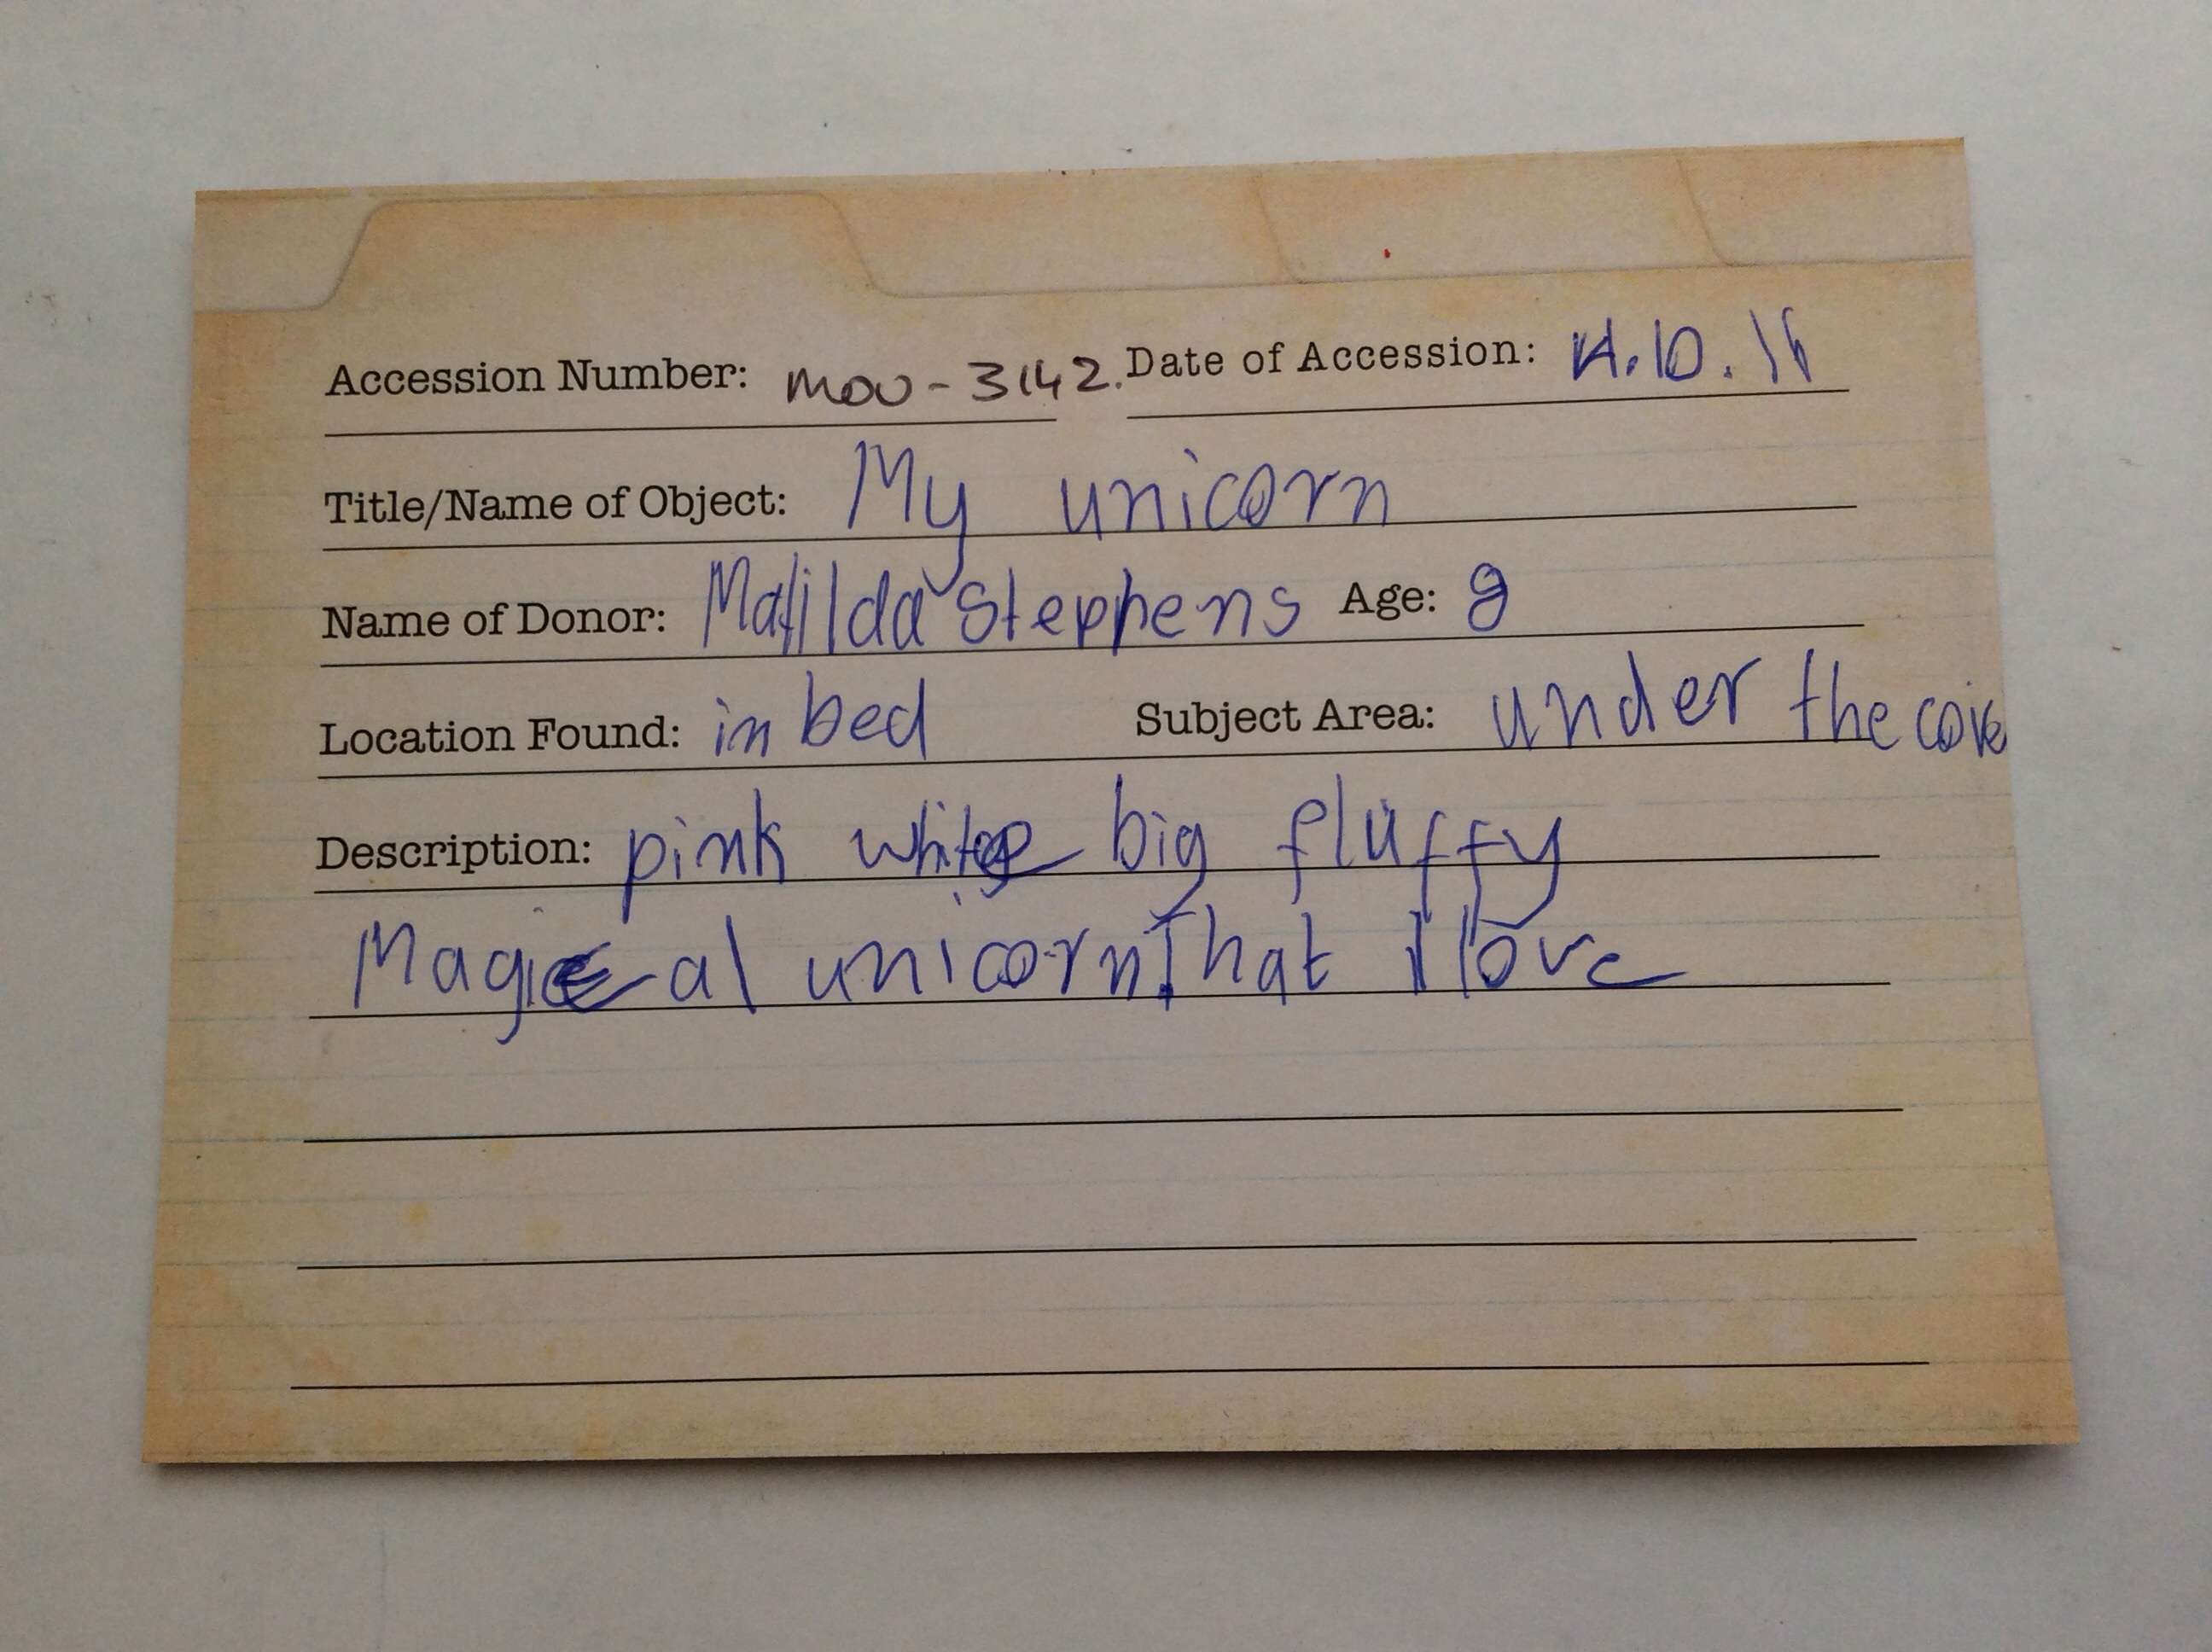 Accession Number: MOU-3142. Date of Accession: 14.10.16
Title/Name of Object: My unicorn
Name of Donor: Matilda Stephens Age: 8
Location Found: in bed Subject Area: under the cove
Description: pink white big fluffy
Magical unicorn That I love